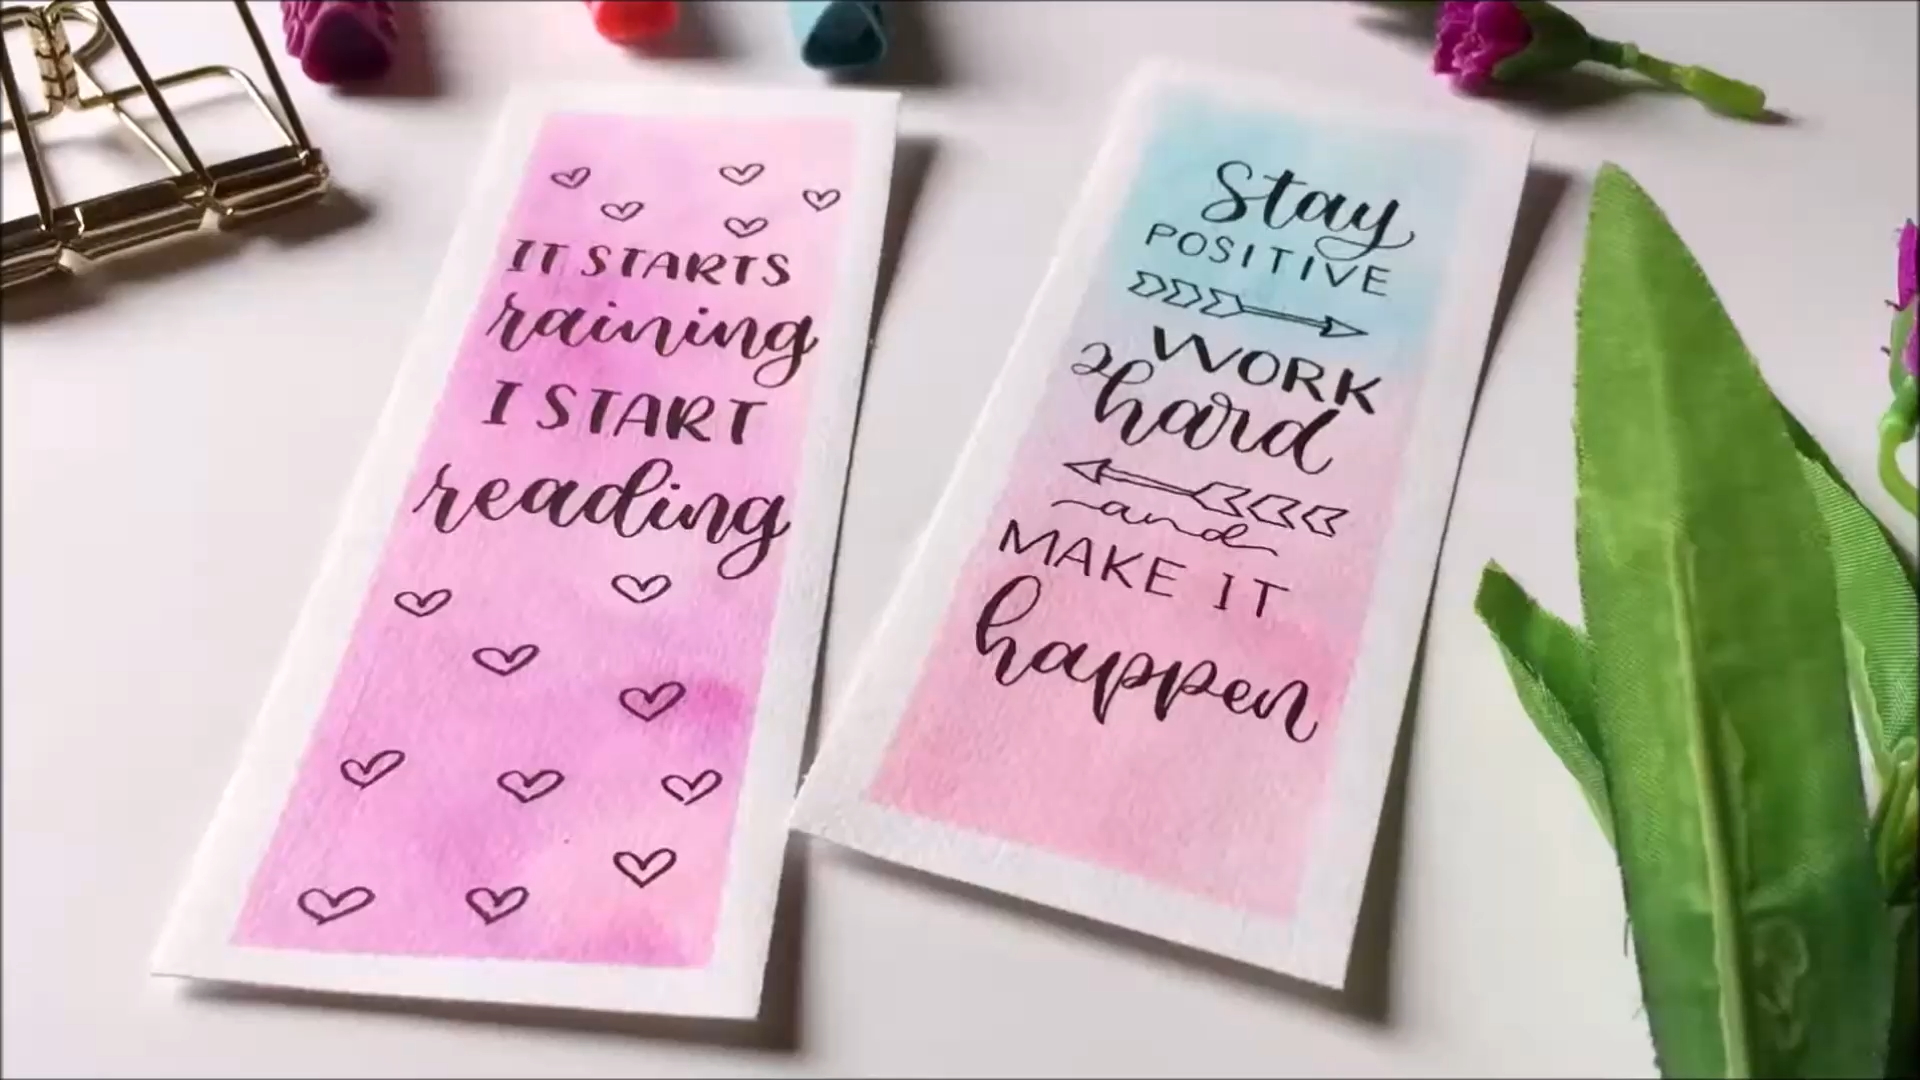 IT STARTS
raining
I START
reading
Stay
POSITIVE
WORK
hard
and
MAKE IT
happen